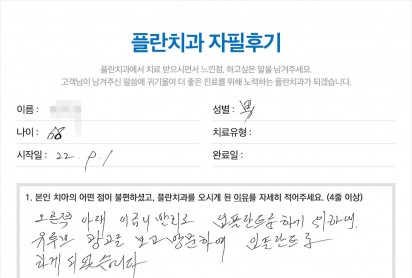 플란치과 자필후기
플란치과에서 치료 받으시면서 느낀점, 하고싶은 말을 남겨주세요.
고객님이 남겨주신 말씀에 귀기울여 더 좋은 진료를 위해 노력하는 플란치과가 되겠습니다.
이름 : 성별 : 男
나이 : 68 치료유형 :
시작일 : 22. 9. 1 완료일 :
1. 본인 치아의 어떤 점이 불편하셨고, 플란치과를 오시게 된 이유를 자세히 적어주세요. (4줄 이상)
오른쪽 아래 어금니 발치로 임플란트를 하기 위하여
유투브 광고를 보고 방문하여 임플란트를
하게 되었습니다